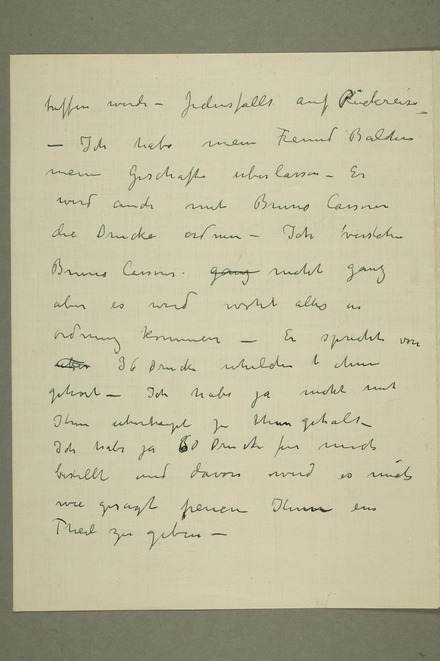 treffen werde – Jedenfalls auf Rückreise –
– Ich habe mein Freund Baldner
mein Geschäfte überlassen – Er
wird auch mit Bruno Cassirer
die Drucke ordnen – Ich verstehe
Bruno Cassirer. ganz nicht ganz
aber es wird wohl alles in
ordnung kommen – Er spricht von
36 Drucke ihm
gehört – Ich habe ja nicht mit
Ihm überhaupt zu thun gehabt –
Ich habe ja 60 Drucke für mich
bestellt und davon wird es mich
wie gesagt freuen Ihnen ein
Theil zu geben –